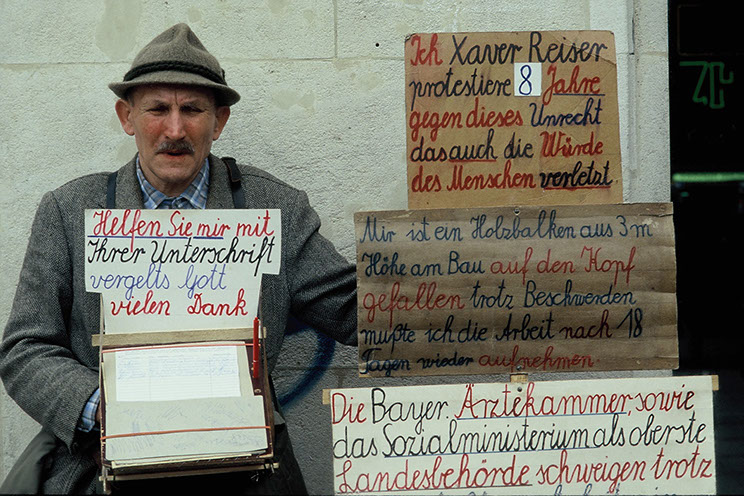 Helfen Sie mir mit
Ihrer Unterschrift
vergelts Gott
vielen Dank
Ich Xaver Reiser
protestiere 8 Jahre
gegen dieses Unrecht
das auch die Würde
des Menschen verletzt
Mir ist ein Holzbalken aus 3 m
Höhe am Bau auf den Kopf
gefallen trotz Beschwerden
mußte ich die Arbeit nach 18
Tagen wieder aufnehmen
Die Bayer. Ärztekammer, sowie
das Sozialministerium als oberste
Landesbehörde schweigen trotz